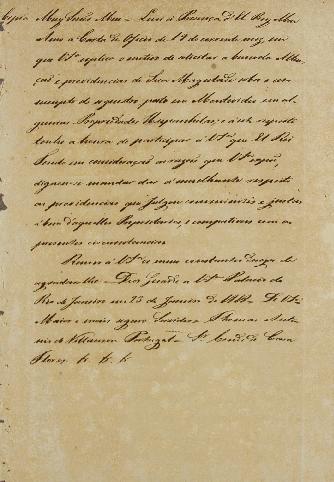 Copia Meu Snr. Levei á Presença d'El Rey Meu
Amo a Carta de Officio de 17 do corrente mez, em
que V.S.ª explica o motivo de solicitar a
e providencias de Sua Magestade sobre o
de sequestro posto em Montevideo em al
gumas Propriedades Hespanholas; e a este respeito
tenho a honra de participar a V.S.ª que El Rei
tendo em consideração as razoens que V.S.ª expoz,
dignou-se mandar dar a semelhante respeito
as providencias que julgou convenientes e justas
a bem daquelles Proprietarios, e compativeis com as
presentes circunstancias
Renovo a V.S.ª os meus constantes desejos de
agradar-lhe = Deos Guarde a V.S.ª Palacio do
Rio de Janeiro em 25 de Janeiro de 1818 = De V.S.ª
Maior e mais seguro Servidor = Thomaz Anto
nio de Villanova Portugal = Snr. Conde de Casa
Flores. &c. &c. &c.